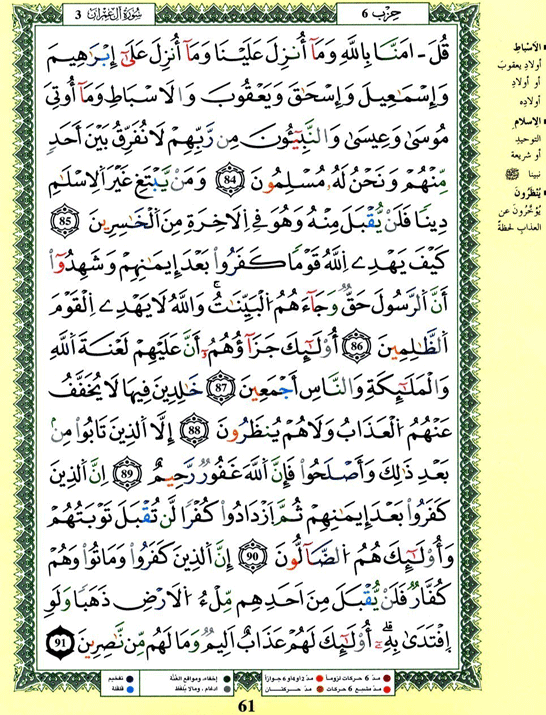 حِزْب 6
سُورَةُ آلِ عِمْرَان 3
قُلَ ـ امَنَّا بِاللَّهِ وَمَآ أُنزِلَ عَلَيْنَا وَمَآ أُنزِلَ عَلَىٰٓ إِبْرَٰهِيمَ
وَإِسْمَٰعِيلَ وَإِسْحَٰقَ وَيَعْقُوبَ وَالَاسْبَاطِ وَمَآ أُوتِيَ
مُوسَىٰ وَعِيسَىٰ وَالنَّبِيٓـُٔونَ مِن رَّبِّهِمْ لَا نُفَرِّقُ بَيْنَ أَحَدٍ
مِّنْهُمْ وَنَحْنُ لَهُۥ مُسْلِمُونَ 84 وَمَنْ يَّبْتَغِ غَيْرَ اَلِاسْلَٰمِ
دِينًا فَلَنْ يُّقْبَلَ مِنْهُ وَهُوَ فِي اِلَاخِرَةِ مِنَ اَلْخَٰسِرِينَ 85
كَيْفَ يَهْدِے اِللَّهُ قَوْمًا كَفَرُواْ بَعْدَ إِيمَٰنِهِمْ وَشَهِدُوٓاْ
أَنَّ اَلرَّسُولَ حَقٌّ وَجَآءَهُمُ اُلْبَيِّنَٰتُ وَاللَّهُ لَا يَهْدِے اِلْقَوْمَ
اَلظَّٰلِمِينَ 86 أُوْلَٰٓئِكَ جَزَآؤُهُمُۥٓ أَنَّ عَلَيْهِمْ لَعْنَةَ اَللَّهِ
وَالْمَلَٰٓئِكَةِ وَالنَّاسِ أَجْمَعِينَ 87 خَٰلِدِينَ فِيهَا لَا يُخَفَّفُ
عَنْهُمُ اُلْعَذَابُ وَلَا هُمْ يُنظَرُونَ 88 إِلَّا اَلذِينَ تَابُواْ مِنۢ
بَعْدِ ذَٰلِكَ وَأَصْلَحُواْ فَإِنَّ اَللَّهَ غَفُورٌ رَّحِيمٌ 89 إِنَّ اَلذِينَ
كَفَرُواْ بَعْدَ إِيمَٰنِهِمْ ثُمَّ اَزْدَادُواْ كُفْرًا لَّن تُقْبَلَ تَوْبَتُهُمْ
وَأُوْلَٰٓئِكَ هُمُ اُلضَّآلُّونَ 90 إِنَّ اَلذِينَ كَفَرُواْ وَمَاتُواْ وَهُمْ
كُفَّارٌ فَلَنْ يُّقْبَلَ مِنَ اَحَدِهِم مِّلْءُ اُلَارْضِ ذَهَبًا وَلَوِ
اِفْتَدَىٰ بِهِۦٓ أُوْلَٰٓئِكَ لَهُمْ عَذَابٌ اَلِيمٌ وَمَا لَهُم مِّن نَّٰصِرِينَ 91
الاَسْبَاطِ
أولاد يعقوبَ
أو أولادِ
أولاده
الاِسلام
التوحيدِ
أو شريعة
نبينا ﷺ
يُنْظَرُونَ
يُؤَخَّرُونَ عن
العذابِ لحظة
مد 6 حركات لزوماً
مد 2 أو 4 أو 6 جوازاً
إخفاء، ومواقع الغُنَّة
تفخيم
مد مشبع 6 حركات
مد حركتان
ادغام، ومالا يلفظ
قلقلة
61